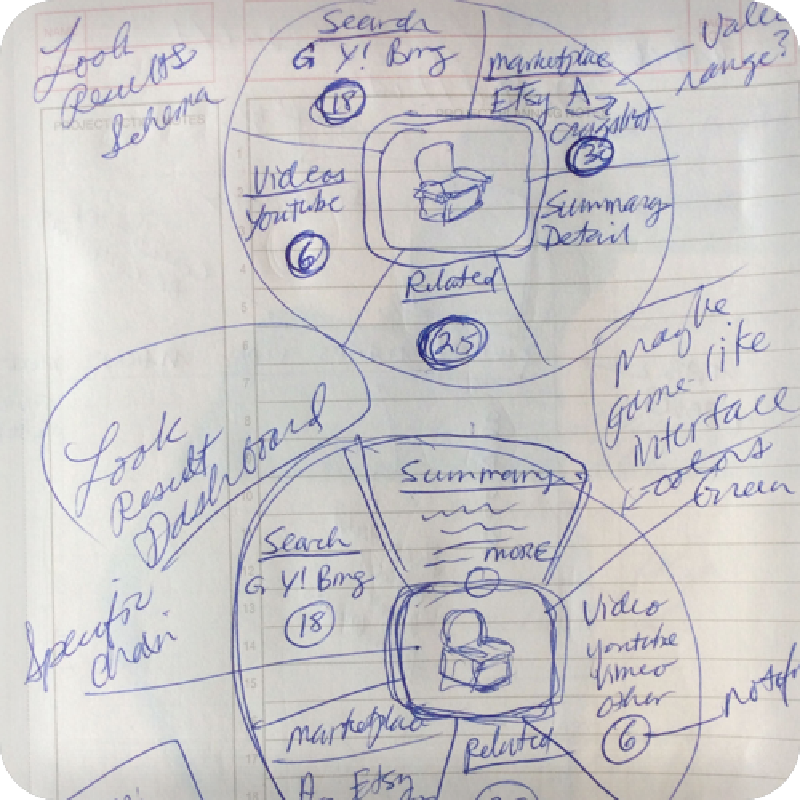 Look
Results
Schema
Search
G Y! Bing
18
Marketplace
Etsy A
Craigslist
Value
range?
Videos
Youtube
6
Summary
Detail
Related
25
Look
Result
Dashboard
Maybe
game-like
interface
colors
Green
Summary
MORE
Search
G Y! Bing
18
Specific
chair
Video
Youtube
Vimeo
other
6
Marketplace
A Etsy
Related